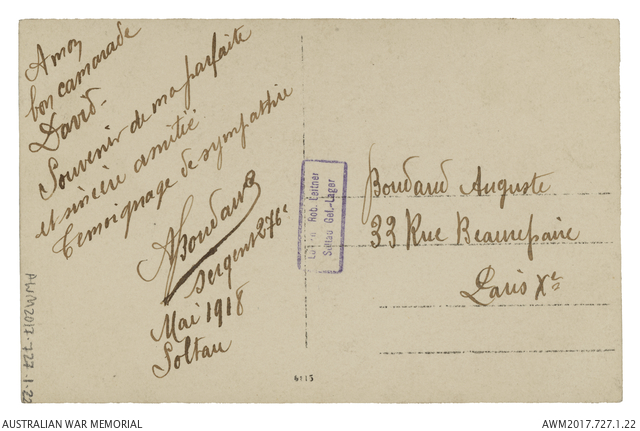 A mon
bon camarade
David.
Souvenir de ma parfaite
et sincère amitié
Témoignage de sympathie
ABoudaud
Sergent 276e
Mai 1918
Soltau
Rob. Leitner
Soltau Gef.-Lager
Boudaud Auguste
33 Rue Beaurepaire
Paris Xe
6115
AWM2017.727.1.22
AUSTRALIAN WAR MEMORIAL
AWM2017.727.1.22